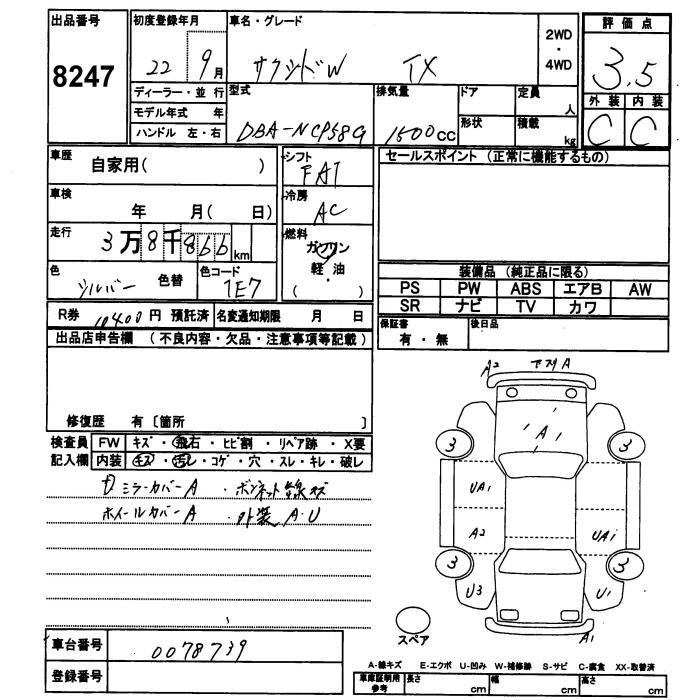 出品番号 8247
初度登録年月 22 9月
車名・グレード サクシードW TX
2WD・4WD
評価点 3.5
外装 内装
C C
ディーラー・並行
モデル年式 年
ハンドル 左・右
型式 DBA-NCP58G
排気量 1500cc
ドア 定員 人
形状 積載 kg
車歴 自家用( )
シフト FAT
セールスポイント (正常に機能するもの)
車検 年 月( 日)
冷房 AC
走行 3万8千866km
燃料 ガソリン・軽油・( )
色 シルバー 色替
色コード 1E7
装備品 (純正品に限る)
PS PW ABS エアB AW
SR ナビ TV カワ
R券 10400円 預託済
名変通知期限 月 日
保証書 有・無
後日品
出品店申告欄 (不良内容・欠品・注意事項等記載)
修復歴 有〔箇所 〕
検査員記入欄
FW キズ・飛石・ヒビ割・リペア跡・X要
内装 キズ・汚レ・コゲ・穴・スレ・キレ・破レ
ミラーカバーA ・ボンネット線キズ
ホイールカバーA ・外装A・U
A2 下スリA
A
3 3
UA1
A2 UA1
3 3
U3 U1
A1
スペア
車台番号 0078739
登録番号
A-線キズ E-エクボ U-凹み W-補修跡 S-サビ C-腐食 XX-取替済
車庫証明用参考 長さ cm 幅 cm 高さ cm